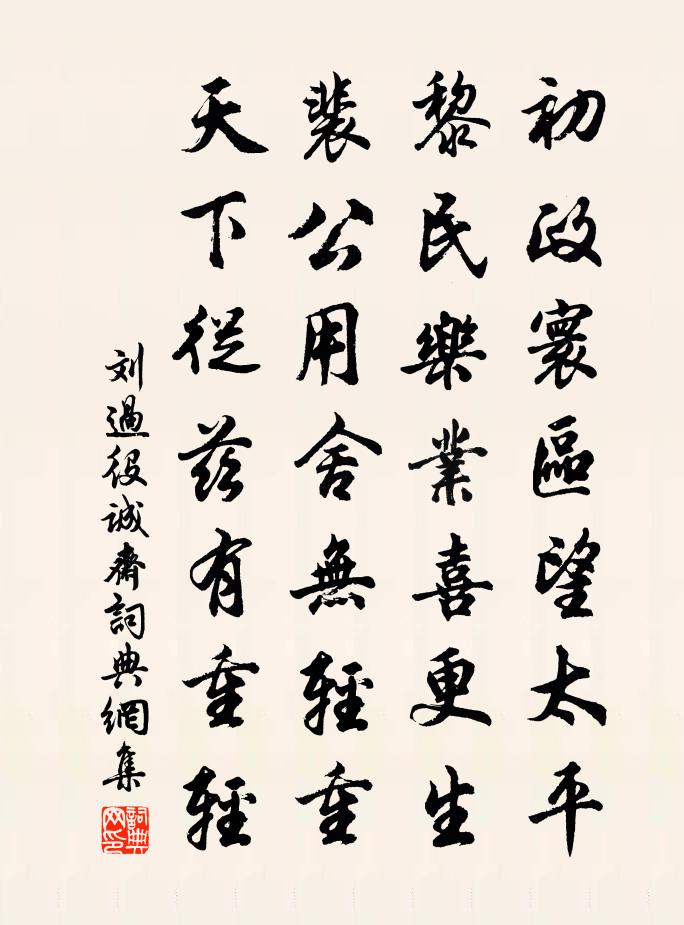 初政寰區望太平
黎民樂業喜更生
裴公用舍無輕重
天下從茲有重輕
刘過投誠齋詞典網集
詞典网印